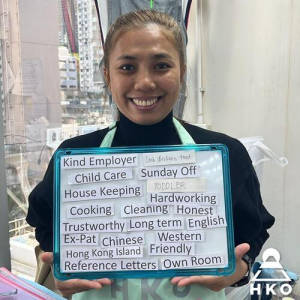 Kind Employer
Child Care Sunday Off
House Keeping TODDLER
Hardworking
Cooking Cleaning Honest
Trustworthy Long term English
Ex-Pat Chinese Western
Hong Kong Island Friendly
Reference Letters Own Room
HKO